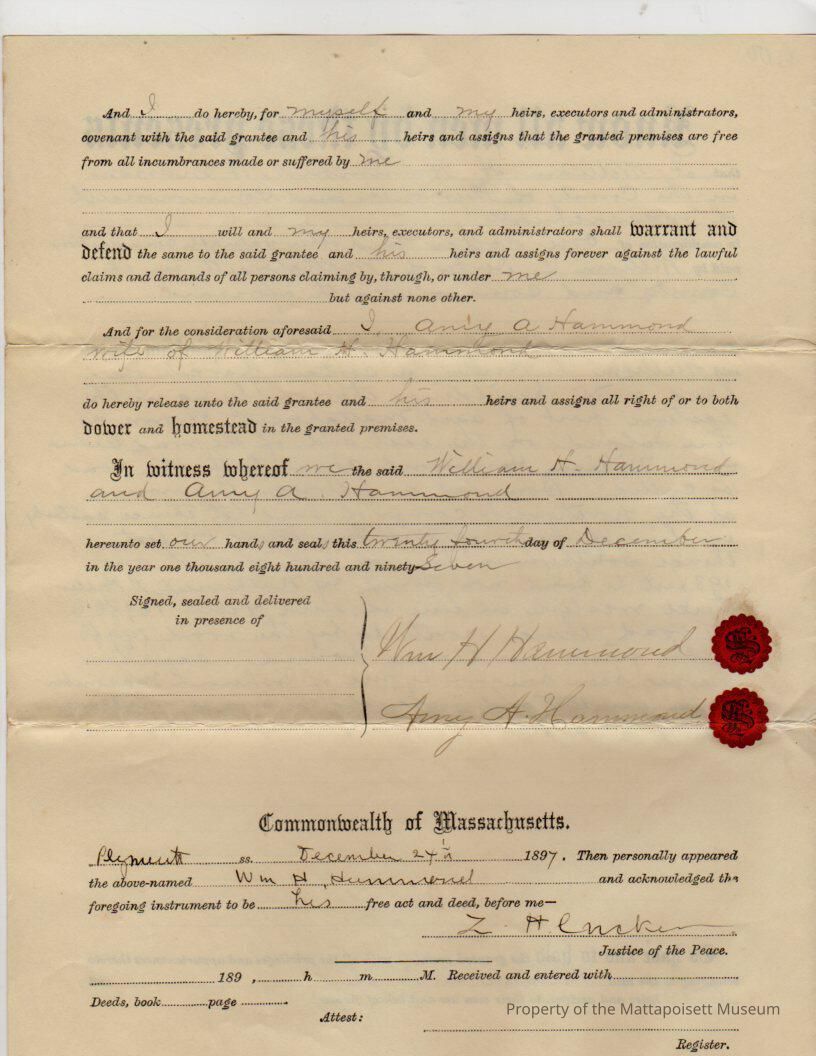 And I do hereby, for myself and my heirs, executors and administrators,
covenant with the said grantee and his heirs and assigns that the granted premises are free
from all incumbrances made or suffered by me
and that I will and my heirs, executors, and administrators shall warrant and
defend the same to the said grantee and his heirs and assigns forever against the lawful
claims and demands of all persons claiming by, through, or under me
but against none other.
And for the consideration aforesaid I, Amy A Hammond
wife of William H. Hammond
do hereby release unto the said grantee and his heirs and assigns all right of or to both
dower and homestead in the granted premises.
In witness whereof we the said William H. Hammond
and Amy A. Hammond
hereunto set our hands and seals this twenty fourth day of December
in the year one thousand eight hundred and ninety-seven
Signed, sealed and delivered
in presence of
Wm H Hammond
Amy A. Hammond
Commonwealth of Massachusetts.
Plymouth ss. December 24th 1897. Then personally appeared
the above-named Wm H. Hammond and acknowledged the
foregoing instrument to be his free act and deed, before me—
H
Justice of the Peace.
189 , h m M. Received and entered with
Deeds, book page
Attest:
Register.
Property of the Mattapoisett Museum